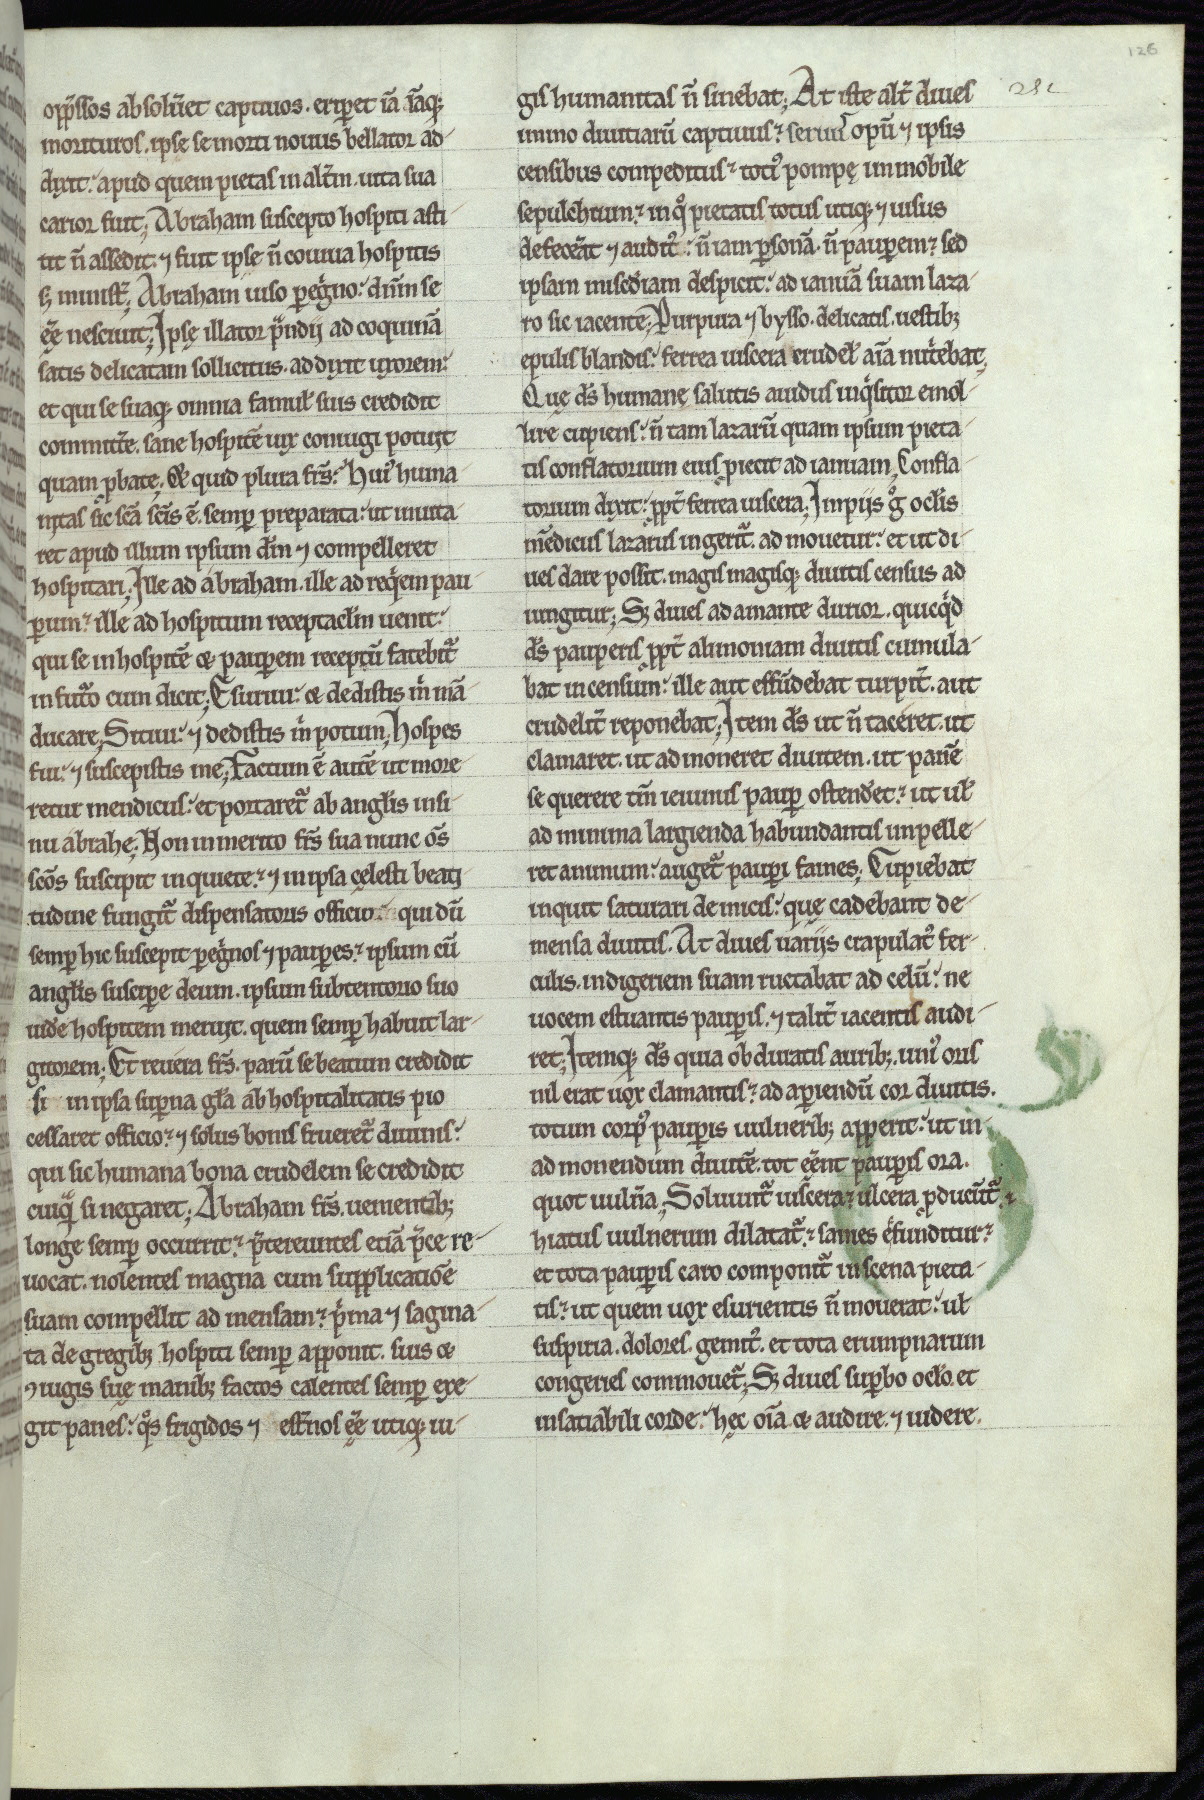 126
282
opp̄ssos absolũet captiuos. eriperet iã iãq;
morituros. ipse se morti nouus bellator ad-
dixit. apud quem pietas in alt̃m. uita sua
carior fuit; Abraham suscepto hospiti asti
tit ñ assedit. ⁊ fuit ipse ñ conuiua hospitis
s; ministr̃. Abraham uiso pegño. dñm se
eẽ nesciuit; Ipse illator p̃ndij ad coquinã
satis delicatam sollicitus. adduxit uxorem.
et qui se suaq; omnia famul̃ suis credidit
committ̃e. sane hospitẽ uix coniugi potuit
quam ꝓbate; & quid plura frs̃. Hui᷒ huma-
nitas sic sc̃a sc̃is ẽ. semp preparata. ut inuita-
ret apud illum ipsum dñm ⁊ compelleret
hospitari; Ille ad abraham. ille ad req̃em pau
perum. ille ad hospitum receptac̃lm uenit.
qui se in hospitẽ & pauperem receptũ fatebit̃
in fut̃o cum dicit; Esuriui. & dedistis m̃ mã
ducare, Sitiui. ⁊ dedistis m̃ potum; Hospes
fui. ⁊ suscepistis me; Factum ẽ autẽ ut more-
retur mendicus. et portaret̃ ab angl̃is in si-
nu abrahę; Non inmerito frs̃ sua nunc oẽs
scõs suscipit in quiete. ⁊ in ipsa celesti beati
tudine fungit̃ dispensatoris officio. qui dũ
semp hic suscepit peg̃nos ⁊ pauperes. ipsum cũ
angl̃is suscipere deum. ipsum sub tentorio suo
uid̃e hospitem meruit. quem semp habuit lar-
gitorem; Et reuera frs̃. parũ se beatum credidit
si in ipsa superna gl̃a ab hospitalitatis pio
cessaret officio. ⁊ solus bonis frueret̃ diuinis.
qui sic humana bona crudelem se credidit
cuiq̃ si negaret; Abraham frs̃. uenientib;
longe semp occurrit. p̃tereuntes etiã p̃ce re-
uocat. nolentes magna cum supplicatiõe
suam compellit ad mensam. p̃ma ⁊ sagina-
ta de gregib; hospiti semp apponit. suis &
ꝯiugis suę manib; factos calentes semp exe-
git panes. q̃s frigidos ⁊ est̃nos eẽ utiq; iu-
gis humanitas ñ sinebat; At iste alt̃ diues
immo diuitiarũ captiuus. seruus opũ ⁊ ipsis
censibus compeditus. toti᷒ pompę immobile
sepulchrum. in q̊ pietatis totus utiq; ⁊ uisus
defecẽat ⁊ audit᷒. ñ iam personã. ñ pauperem. sed
ipsam miseriam despicit. ad ianuã suam laza-
ro sic iacentẽ; Purpura ⁊ bysso. delicatis. uestib;
epulis blandis. ferrea uiscera crudel̃ aĩa nutrebat;
Quę ds̃ humanę salutis auidus inq̃sitor emol-
lire cupiens. ñ tam lazarũ quam ipsum pieta-
tis conflatorium eius piecit ad ianuam; Confla-
torium dixit. ppt̃ ferrea uiscera; Impijs g̊ oc̃lis
medicus lazarus ingerit̃. admouetur. et ut di-
ues dare possit. magis magisq; diuitis census ad
iungitur; S; diues adamante durior. quicq̃d
ds̃ pauperis ppt̃ alimoniam diuitis cumula-
bat in censum. ille aut effũdebat turpit̃. aut
crudelit̃ reponebat; Item ds̃ ut ñ taceret. ut
clamaret. ut admoneret diuitem. ut panẽ
se querere tm̃ ieiunis pauper ostend̃et. ut ul̃
ad minima largienda habundantis impelle-
ret animum. auget̃ pauperi fames; Cupiebat
inquit saturari de micis. quę cadebant de-
mensa diuitis. At diues uarijs crapulat᷒ fer-
culis. indigeriem suam ructabat ad celũ. ne
uocem estuantis pauperis. ⁊ talit̃ iacentis audi-
ret; Itemq; ds̃ quia obduratis aurib;. uni᷒ oris
nil erat uox clamantis. ad aperiendũ cor diuitis.
totum corp᷒ pauperis uulnerib; apperit. ut in-
ad monendum diuitẽ. tot eẽnt pauperis ora.
quot uuln̄a; Soluunt̃ uiscera. ulcera ꝓducũt̃. ⁊
hiatus uulnerum dilatat̃. sanies effunditur.
et tota pauperis caro componit̃ in scena pieta-
tis. ut quem uox esurientis ñ mouerat. ul̃
suspiria. dolores. gemit᷒. et tota erumpnarum
congeries commouet̃; S; diues superbo oc̃lo. et
insatiabili corde. hęc oĩa & audire. ⁊ uidere.